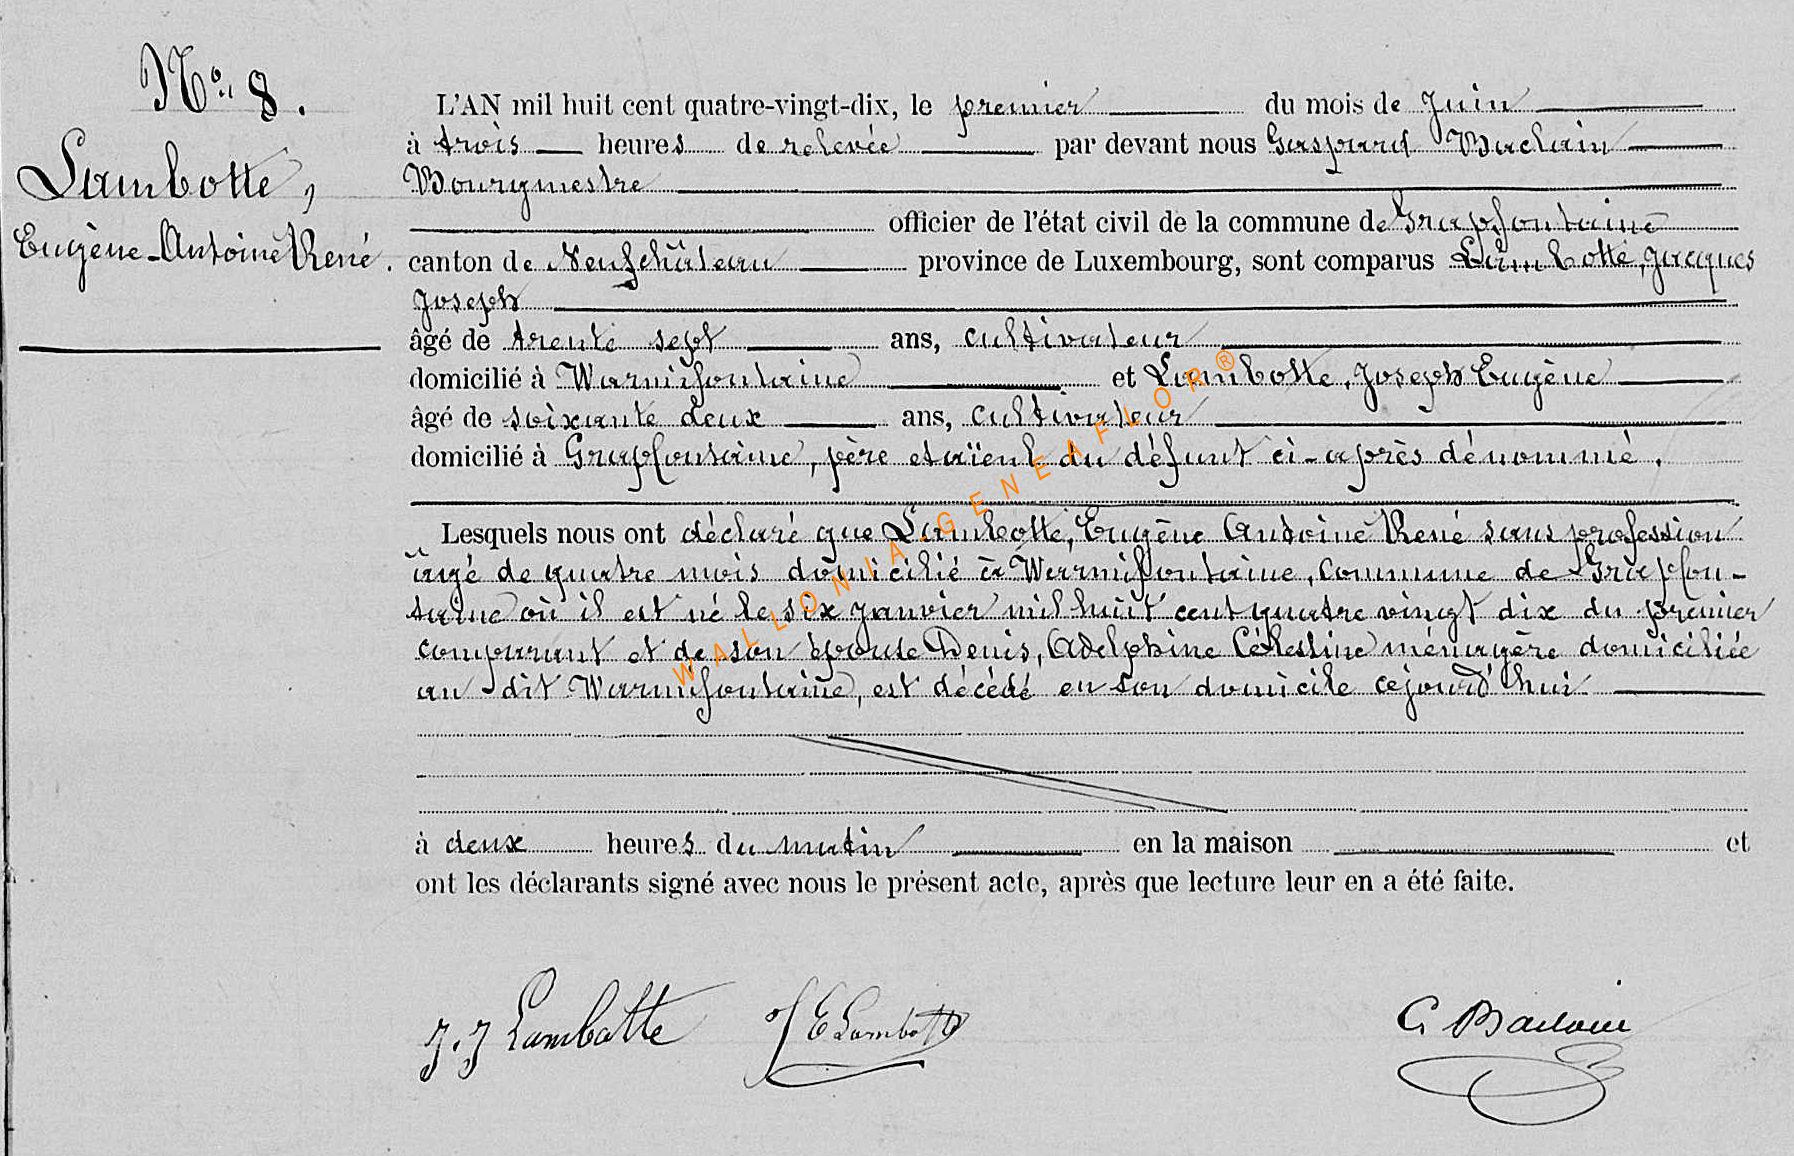 No. 8.
Lambotte,
Eugène-Antoine René.
L'AN mil huit cent quatre-vingt-dix, le premier du mois de Juin
à trois heures de relevée par devant nous Gaspard Baclain
Bourgmestre
officier de l'état civil de la commune de Grapfontaine
canton de Neufchâteau province de Luxembourg, sont comparus Lambotte, Jacques
Joseph
âgé de trente sept ans, cultivateur
domicilié à Warmifontaine et Lambotte, Joseph Eugène
âgé de soixante deux ans, cultivateur
domicilié à Grapfontaine, père et aïeul du défunt ci-après dénommé.
Lesquels nous ont déclaré que Lambotte, Eugène Antoine René sans profession
âgé de quatre mois domicilié à Warmifontaine, Commune de Grapfon-
taine où il est né le six janvier mil huit cent quatre vingt dix du premier
comparant et de son épouse Denis, Adelphine Célestine ménagère domiciliée
au dit Warmifontaine, est décédé en son domicile cejourd'hui
à deux heures du matin en la maison et
ont les déclarants signé avec nous le présent acte, après que lecture leur en a été faite.
J. J Lambotte J E Lambotte G Baclain
WALLONIA GENEAFLOR®